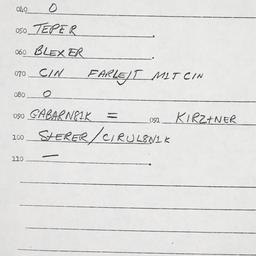 040 O
050 TEPER
060 BLEXER
070 CIN FARLEJT MIT CIN
080 O
090 GABARN81K = 091 KIRZ+NER
100 S+ERER/CIRUL8N1K
110 —